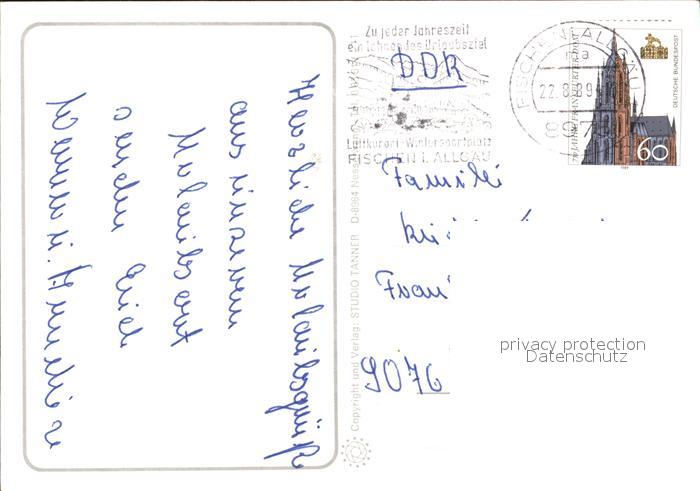 Herzliche Urlaubsgrüße
aus unserem
Urlaubsort
senden Euch
Zu jeder Jahreszeit
ein lohnendes Urlaubsziel
Luftkurort-Wintersportplatz
FISCHEN i. ALLGÄU
DDR
FISCHEN i. ALLGÄU
a
22.8.89
8975
DEUTSCHE BUNDESPOST
60
Familie
Frau
9076
Copyright und Verlag: STUDIO TANNER D-8964 Ness
privacy protection
Datenschutz